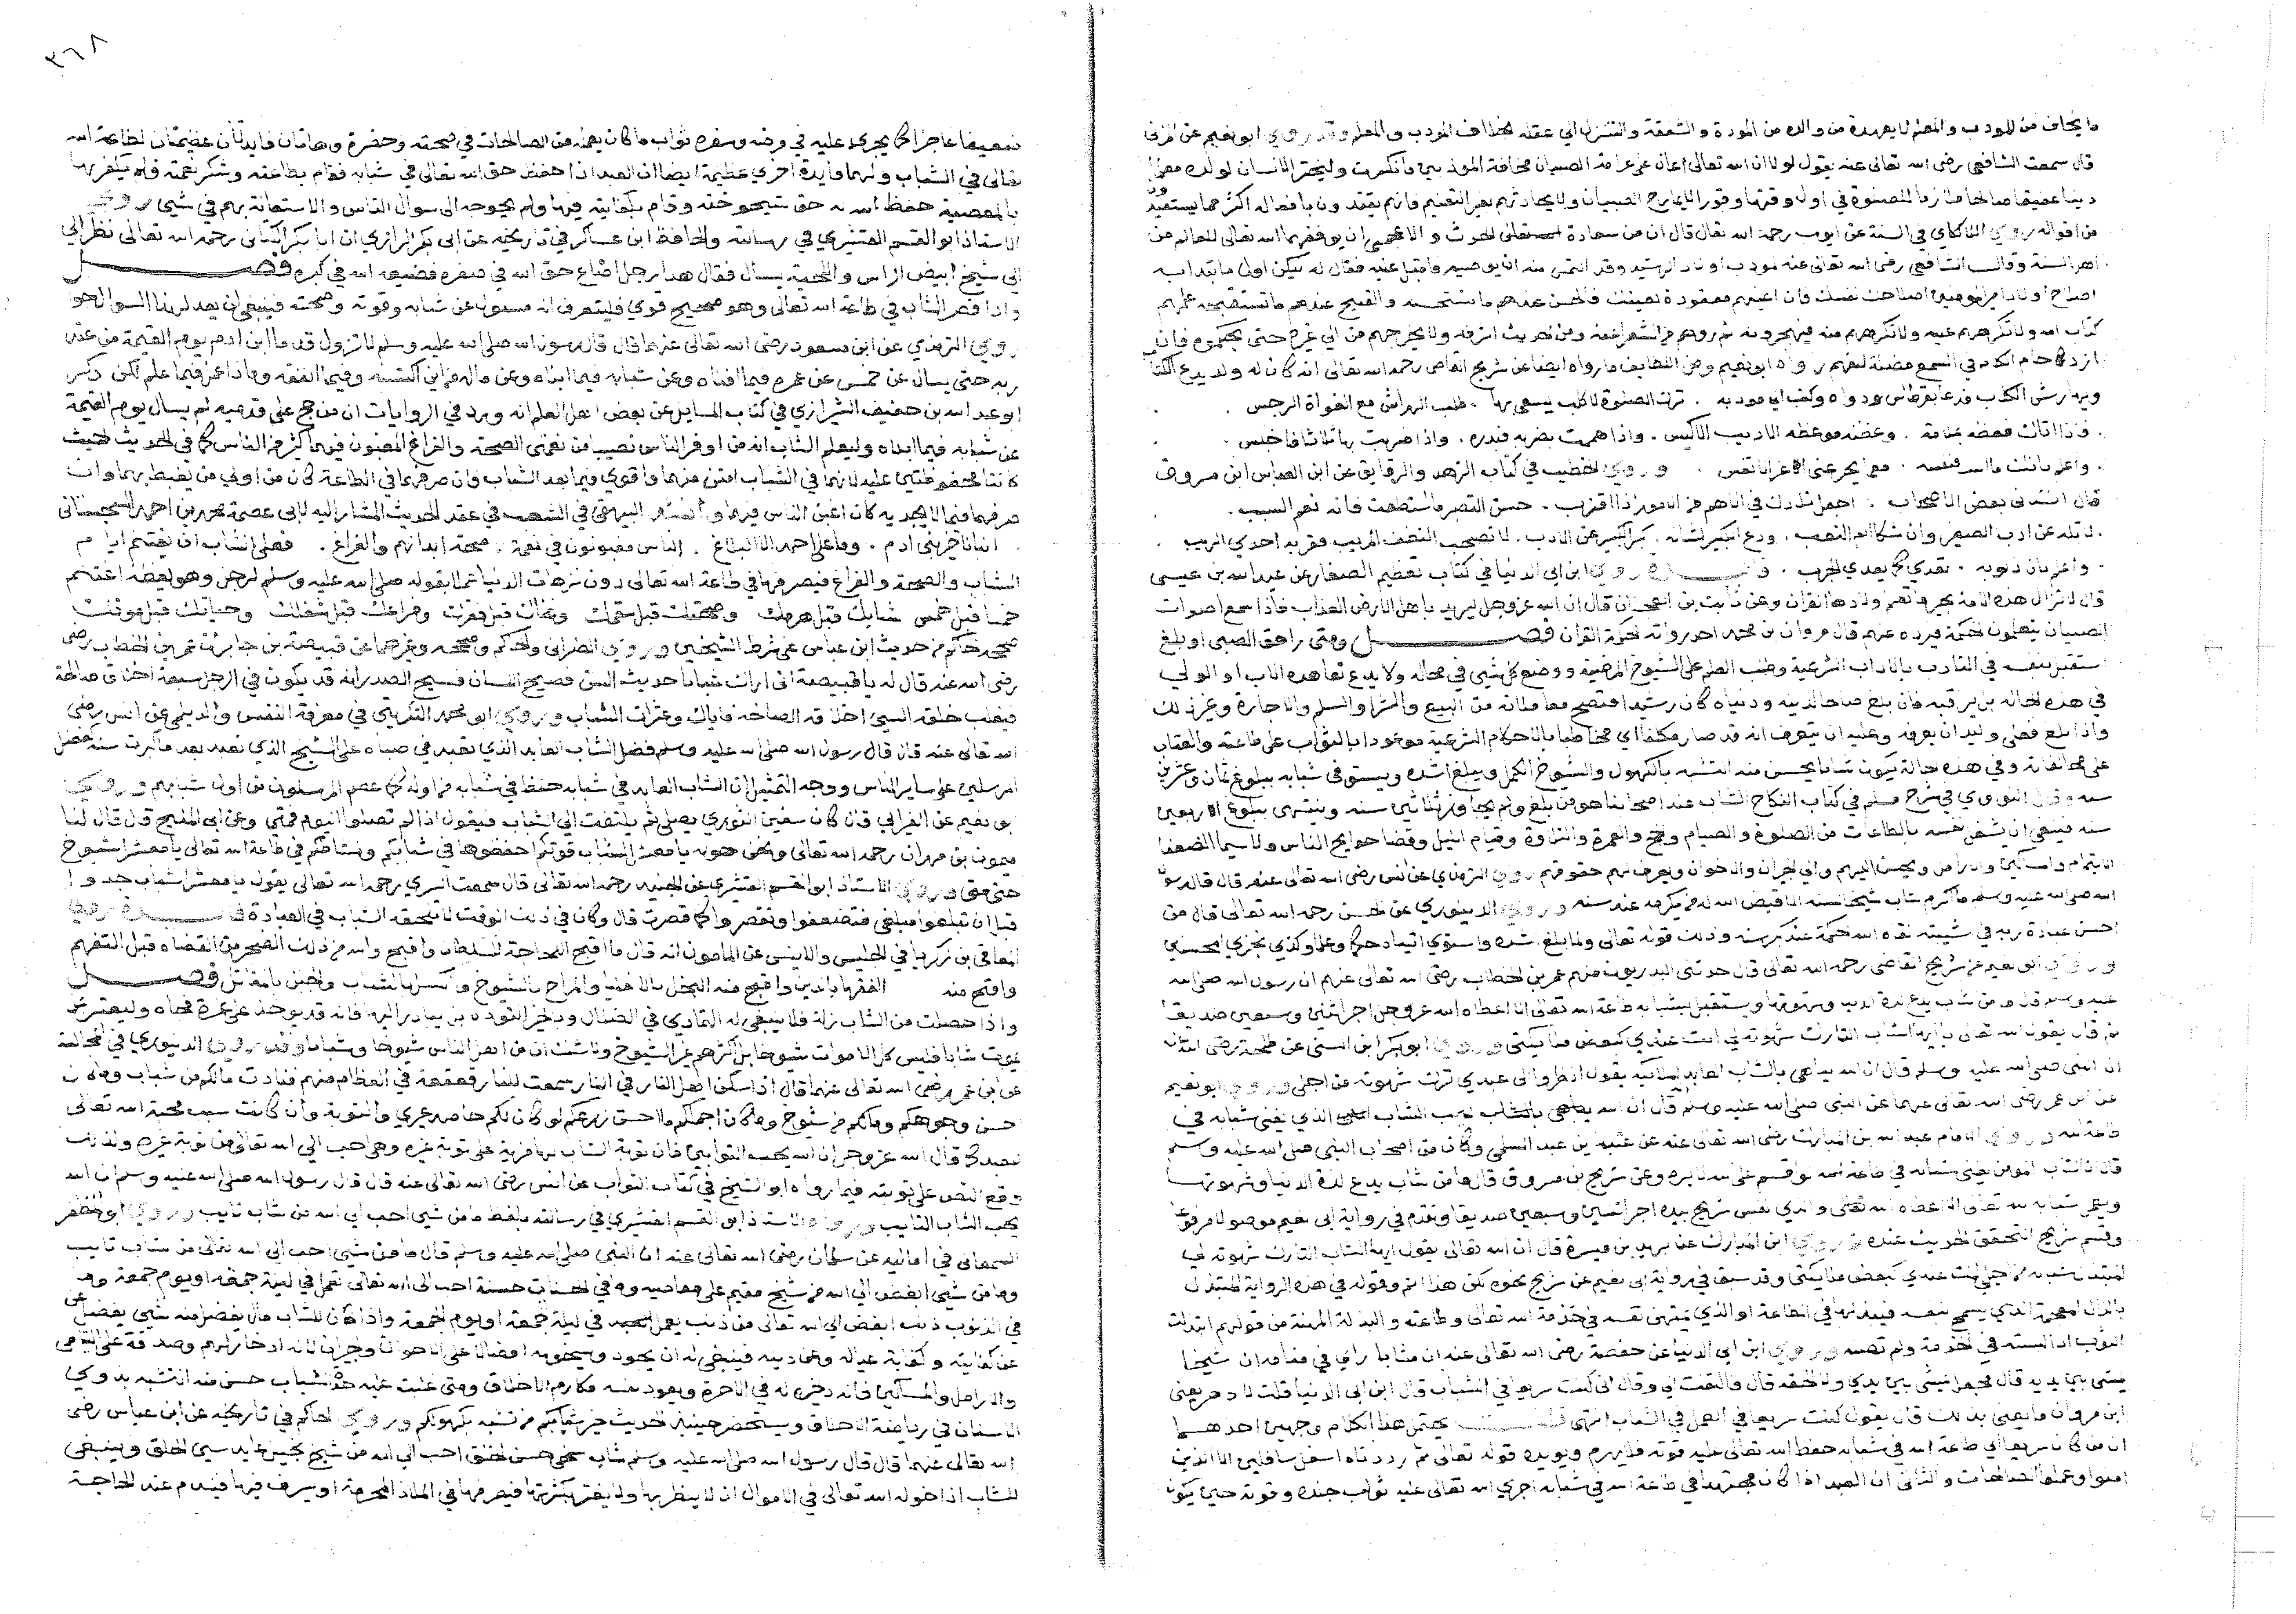 ما يخاف من المودب والمعلم لا يعهده من والده من المودة والشفقة والتنزل الي عقله بخلاف المودب والمعلم وقد روي ابو نعيم عن المزني
قال سمعت الشافعي رضى الله تعالى عنه يقول لولا ان الله تعالى اعان على عرامة الصبيان مخافة المودبين وليختر الانسان لولده معلما
دينا عفيفا صالحا ملازما للصلوة في اول وقتها وقورا لا يمازح الصبيان ولا يحادثهم بغير التعليم فانهم يقتدون بافعاله اكثر مما يستفيدون
من اقواله روي اللالكاي في السنة عن ايوب رحمه الله تعالى قال ان من سعادة الحدث والاعجمي ان يوفقهما الله تعالى للعالم من
اهل السنة وقال الشافعي رضى الله تعالى عنه لمودب اولاد الرشيد وقد التمس منه ان يوصيه فاقبل عليه فقال له ليكن اول ما تبدا به
اصلاح اولاد امير المومنين اصلاحك نفسك فان اعينهم معقودة بعينك فالحسن عندهم ما تستحسنه والقبيح عندهم ما تستقبحه علمهم
كتاب الله ولا تكرههم عليه ولا تتركهم منه فيهجرونه ثم روهم من الشعر اعفه ومن الحديث اشرفه ولا تخرجهم من الي غيره حتى يحكموه فان
ازدحام الكلام في السمع مضلة للفهم رواه ابو نعيم ومن اللطايف ما رواه ايضا عن شريح القاضي رحمه الله تعالى انه كان له ولد يدع الكتاب
ويهارش الكلاب فدعا بقرطاس ودواة وكتب الي مودبه . ترك الصلوة لاكلب يسعى بها . طلب الهراش مع الغواة الرجس .
. فاذا اتاك فعظه بملامة . وعظنه موعظة الاديب الاكيس . واذا هممت بضربه فبدرة . واذا ضربت بها ثلاثا فاحبس .
. واعلم بانك ما اتيت فنفسه . مع ما يجرعنى اعز الانفس . وروي الخطيب في كتاب الزهد والرقايق عن ابن العباس ابن مسروق
قال انشدني بعض الاصحاب . اجعل تلادك في المهم من الامور اذا اقترب . حسن التصبر ما استطعت فانه نعم السبب .
. لا تله عن ادب الصغير وان شكا الم التعب . ودع الكبير لشانه . كبر الكبير عن الادب . لا تصحب النطف المريب فقربه احدي الريب .
. واعلم بان ذنوبه . تعدي كما يعدي الجرب . روي ابن ابي الدنيا في كتاب تعظيم الصغار عن عبد الله بن عيسى
قال لا تزال هذه الامة بخير ما تعلم ولدانها القران وعن ثابت بن العجلان قال ان الله عز وجل ليريد باهل الارض العذاب فاذا سمع اصوات
الصبيان يتعلمون الحكمة فيرده عنهم قال مروان بن محمد احد رواته الحكمة القران فصل ومتى راهق الصبي او بلغ
استقبل بنفسه في التادب بالاداب الشرعية وطلب العلم على الشيوخ المرضية ووضع كل شيي في محله ولا يدع تعاهده الاب او الولي
في هذه الحالة بل يراقبه فان بلغ صالحا لدينه ودنياه كان رشيدا فتصح معاملاته من البيع والشرا والسلم والاجارة وغير ذلك
واذا بلغ فعلى وليه ان يعرفه وعليه ان يتعرف انه قد صار مكلفا اي مخاطبا بالاحكام الشرعية موعودا بالثواب على طاعته والعقاب
على مخالفاته وفي هذه الحالة يكون شابا يحسن منه التشبه بالكهول والشيوخ الكمل ويبلغ اشده ويستوفى شبابه ببلوغ ثمان وعشرين
سنة وقال النووي في شرح مسلم في كتاب النكاح الشاب عند اصحابنا هو من بلغ ولم يجاوز ثلاثين سنة وينتهى ببلوغ الاربعين
سنة فينبغي ان يشغل نفسه بالطاعات من الصلوة والصيام والحج والعمرة والتلاوة وقيام الليل وقضا حوايج الناس ولا سيما الضعفا
الايتام والمساكين والارامل ويحسن اليهم والي الجيران والاخوان ويعرف لهم حقوقهم روي الترمذي عن انس رضى الله تعالى عنه قال قال رسول
الله صلى الله عليه وسلم ما اكرم شاب شيخا لسنه الا قيض الله له من يكرمه عند سنه وروي الدينوري عن الحسن رحمه الله تعالى قال من
احسن عبادة ربه في شبيبته لقاه الله الحكمة عند كبر سنه وذلك قوله تعالى ولما بلغ اشده واستوي اتيناه حكما وعلما وكذلك نجزي المحسنين
وروي ابو نعيم عن شريح القاضي رحمه الله تعالى قال حدثني البدريون منهم عمر بن الخطاب رضى الله تعالى عنهم ان رسول الله صلى الله
عليه وسلم قال ما من شاب يدع لذة الدنيا وشهوتها ويستقبل بشبابه طاعة الله تعالى الا اعطاه الله عز وجل اجر اثنين وسبعين صديقا
ثم قال يقول الله تعالى يا ايها الشاب التارك شهوته لي انت عندي كبعض ملايكتي وروي ابو بكر ابن السني عن طلحة رضى الله عنه
ان النبي صلى الله عليه وسلم قال ان الله يباهي بالشاب العابد الملايكة يقول انظروا الى عبدي ترك شهوته من اجلي وروي ابو نعيم
عن ابن عمر رضى الله تعالى عنهما عن النبي صلى الله عليه وسلم قال ان الله يحب الشاب الذي يفني شبابه في
طاعة الله وروي الامام عبد الله بن المبارك رضى الله تعالى عنه عن عتبة بن عبد السلمي وكان من اصحاب النبي صلى الله عليه وسلم
قال الشاب المومن يفني شبابه في طاعة الله لو اقسم على الله لابره وعن شريح بن مسروق قال ما من شاب يدع لذة الدنيا وشهوتها
ويعمل شبابه لله تعالى الا اعطاه الله تعالى والذي نفس شريح بيده اجر اثنين وسبعين صديقا وتقدم في رواية ابي نعيم موصولا مرفوعا
وقسم شريح لتحقق الحديث عنده وروي ابن المبارك عن يزيد بن ميسرة قال ان الله تعالى يقول ايها الشاب التارك شهوته لي
المبتذل شبابه من اجلي انت عندي كبعض ملايكتي وقد سبق في رواية ابي نعيم عن شريح نحوه لكن هذا اتم وقوله في هذه الرواية المبتذل
بالذال المعجمة الذي يسمح بنفسه فيبذلها في الطاعة او الذي يمتهن نفسه في خدمة الله تعالى وطاعته والبذلة المهنة من قولهم ابتذلت
الثوب اذا البسته في الخدمة ولم تصنه وروي ابن ابي الدنيا عن حفصة رضى الله تعالى عنه ان شابا راي في منامه ان شيخا
يمشي بين يديه قال فجعل يمشي بين يدي ولا الحقه قال والتفت الي وقال اني كنت سريعا في الشباب قال ابن ابي الدنيا قلت
ابن مروان ما يعني بذلك قال يقول كنت سريعا في العمل في الشباب انتهى قلت يحتمل هذا الكلام وجهين احدهما
ان من كان سريعا في طاعة الله في شبابه حفظ الله تعالى عليه قوته فلا يهرم ويويده قوله تعالى ثم رددناه اسفل سافلين الا الذين
امنوا وعملوا الصالحات والثاني ان العبد اذا كان مجتهدا في طاعة الله في شبابه اجري الله تعالى عليه ثواب جلده وقوته حين يكون
٣٦٨
ضعيفا عاجزا كما يجري عليه في مرضه وسفره ثواب ما كان يعمله من الصالحات في صحته وحضره وهاتان فايدتان عظيمتان لطاعة الله
تعالى في الشباب ولهما فايدة اخري عظيمة ايضا ان العبد اذا حفظ حق الله تعالى في شبابه فقام بطاعته وشكر نعمته فلم يكفرها
بالمعصية حفظ الله له حق شيخوخته وقام بكفايته فيها ولم يحوجه الى سوال الناس والاستعانة بهم في شيي روي
الاستاذ ابو القسم القشيري في رسالته والحافظ ابن عساكر في تاريخه عن ابى بكر الرازي ان ابا بكر الكتاني رحمه الله تعالى نظر الي
الى شيخ ابيض الراس واللحية يسال فقال هذا رجل اضاع حق الله في صغره فضيعه الله في كبره فصل
واذا قصر الشاب في طاعة الله تعالى وهو صحيح قوي فليتعرف انه مسول عن شبابه وقوته وصحته فينبغي ان يعد لهذا السوال جوابا
روي الترمذي عن ابن مسعود رضى الله تعالى عنه قال قال رسول الله صلى الله عليه وسلم لا تزول قدما ابن ادم يوم القيمة من عند
ربه حتى يسال عن خمس عن عمره فيما افناه وعن شبابه فيما ابلاه وعن ماله من اين اكتسبه وفيما انفقه وماذا عمل فيما علم لكن ذكر
ابو عبد الله بن خفيف الشيرازي في كتاب المسايل عن بعض اهل العلم انه ورد في الروايات ان من حج على قدميه لم يسال يوم القيمة
عن شبابه فيما ابلاه وليعلم الشاب انه من اوفر الناس نصيبا من نعمتى الصحة والفراغ المغبون فيهما كثير من الناس كما في الحديث حيث
كانتا محفوظتين عليه لانهما في الشباب امكن منهما واقوي فيما بعد الشباب وان صرفهما في الطاعة كان من اولى من يغبط بهما وان
صرفهما فيما لا يجديه كان اغبن الناس فيهما وانشد البيهقي في الشعب في عقد الحديث المشار اليه لابى عصمة محمد بن احمد السجستاني
. انبانا خير بني ادم . وما على احمد الا البلاغ . الناس مغبونون في نعمة . صحة ابدانهم والفراغ . فعلى الشاب ان يغتنم ايام
الشباب والصحة والفراغ فيصرفها في طاعة الله تعالى دون ترهات الدنيا عملا بقوله صلى الله عليه وسلم لرجل وهو يعظه اغتنم
خمسا قبل خمس شبابك قبل هرمك وصحتك قبل سقمك وغناك قبل فقرك وفراغك قبل شغلك وحياتك قبل موتك
صححه الحاكم من حديث ابن عباس على شرط الشيخين وروي الطبراني والحاكم وصححه وغيرهما عن قبيصة بن جابر ان عمر بن الخطاب رضى
رضى الله عنه قال له يا قبيصة انى اراك شابا حديث السن فصيح اللسان فسيح الصدر انه قد يكون في الرجل تسعة اخلاق صالحة
فيغلب خلقه السيي اخلاقه الصالحة فاياك وعثرات الشباب وروي ابو محمد التكريتي في معرفة النفس والديلمي عن انس رضى
الله تعالى عنه قال قال رسول الله صلى الله عليه وسلم فضل الشاب العابد الذي تعبد في صباه على الشيخ الذي تعبد بعد ما كبرت سنه كفضل
المرسلين على ساير الناس ووجه التمثيل ان الشاب العابد في شبابه حفظ في شبابه من اوله كما عصم المرسلون من اول شبابهم وروي
ابو نعيم عن الفريابي قال كان سفين الثوري يصلى ثم يلتفت الى الشباب فيقول اذا لم تصلوا اليوم فمتى وعن ابى المليح قال قال لنا
ميمون بن مهران رحمه الله تعالى ونحن حوله يا معشر الشباب قوتكم احفظوها في شبابكم ونشاطكم في طاعة الله تعالى يا معشر الشيوخ
حتى متى وروي الاستاذ ابو القسم القشيري عن الجنيد رحمه الله تعالى قال سمعت السري رحمه الله تعالى يقول يا معشر الشباب جدوا
قبل ان تبلغوا مبلغي فتضعفوا وتقصروا كما قصرت قال وكان في ذلك الوقت لا تلحقه الشباب في العبادة روي
المعافى بن زكريا في الجليس والانيس عن المامون انه قال ما اقبح اللجاجة بالسلطان واقبح والله من ذلك الضجر من القضاة قبل التفهم
واقبح منه الفقها بالدين واقبح منه البخل بالاغنيا والمزاح بالشيوخ والكسل بالشباب والجبن بالمقاتل فصل
واذا حصلت من الشاب زلة فلا ينبغي له التمادي في الضلال وتاخير التوبة بل يبادر اليها فانه قد يوخذ على غرة
يموت شابا فليس كل الاموات شيوخا بل اكثرهم غير الشيوخ ولا شك ان من اهل النار شيوخا وشبابا وقد روي الدينوري في المجالسة
عن ابن عمر رضى الله تعالى عنهما قال اذا سكن اهل النار في النار سمعت للنار قعقعة في العظام منهم فنادت مالكم من شباب وما كان
حسن وجوهكم ومالكم من شيوخ وما كان اجملكم ما احسن زرعكم لو كان لكم حاصد غيري والتوبة وان كانت سبب محبة الله تعالى
للعبد كما قال الله عز وجل ان الله يحب التوابين فان توبة الشاب لها مزية على توبة غيره وهى احب الى الله تعالى من توبة غيره ولذلك
وقع النص على توبته فيما رواه ابو الشيخ في كتاب الثواب عن انس رضى الله تعالى عنه قال قال رسول الله صلى الله عليه وسلم ان الله
يحب الشاب التايب ورواه الاستاذ ابو القسم القشيري في رسالته بلفظ ما من شيي احب الي الله من شاب تايب وروي ابو المظفر
السمعاني في اماليه عن سلمان رضى الله تعالى عنه ان النبى صلى الله عليه وسلم قال ما من شيي احب الي الله تعالى من شاب تايب
وما من شيي ابغض الي الله من شيخ مقيم على معاصيه وما في الحسنات حسنة احب الى الله تعالى تعمل في ليلة جمعة او يوم جمعة وما
في الذنوب ذنب ابغض الى الله تعالى من ذنب يعمل في ليلة جمعة او يوم الجمعة واذا كان للشاب مال يفضل منه شيي يفضل عن
عن كفايته وكفاية عياله وعن دينه فينبغي له ان يجود ويسخو به افضالا على الاخوان والجيران لانه ادخار لهم وصدقة على اليتامى
والارامل والمساكين فانه ذخيره له في الاخرة ويعود نفسه مكارم الاخلاق ومتى غلبت عليه حدة الشباب حسن منه التشبه بذوي
الاسنان في رياضة الاخلاق ويستحضر حينئذ الحديث خير شبابكم من تشبه بكهولكم وروي الحاكم في تاريخه عن ابن عباس رضى
الله تعالى عنهما قال قال رسول الله صلى الله عليه وسلم شاب سخي حسن الخلق احب الي الله من شيخ بخيل عابد سيي الخلق وينبغي
للشاب اذا خوله الله تعالى في الاموال ان لا يبطر بها ولا يغتر بكثرتها فيصرفها في الملاذ المحرمة او يسرف فيها فيندم عند الحاجة